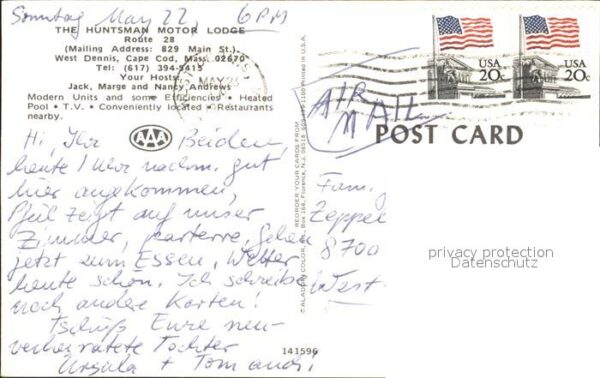 Sonntag May 22, 6PM
THE HUNTSMAN MOTOR LODGE
Route 28
(Mailing Address: 829 Main St.)
West Dennis, Cape Cod, Mass. 02670
Tel: (617) 394-5415
Your Hosts:
Jack, Marge and Nancy Andrews
Modern Units and some Efficiencies • Heated
Pool • T.V. • Conveniently located • Restaurants
nearby.
AAA
Hi, Ihr Beiden,
heute 1 Uhr nachm. gut
hier angekommen,
Pfeil zeigt auf unser
Zimmer, parterre, gehen
jetzt zum Essen, Wetter
heute schön. Ich schreibe
noch andere Karten!
Tschüß Eure neu-
verheiratete Tochter
Ursula + Tom
141596
REORDER YOUR CARDS FROM
© ALADDIN COLOR, INC., Box 169, Florence, N.J. 08518
Printed in U.S.A.
MAY 23
USA
20c
USA
20c
AIR
MAIL
POST CARD
Fam.
Zeppel
8700
West-
privacy protection
Datenschutz